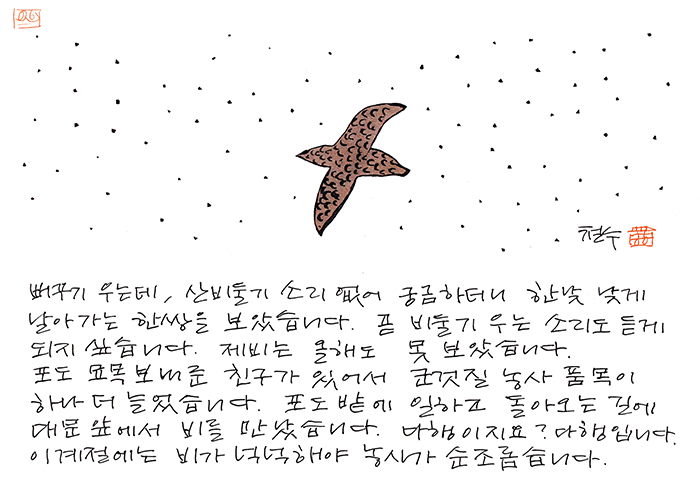 철수
뻐꾸기 우는데, 산비둘기 소리 없어 궁금하더니 한낮 낮게
날아가는 한쌍을 보았습니다. 곧 비둘기 우는 소리도 듣게
되지 싶습니다. 제비는 올해도 못 보았습니다.
포도 묘목 보내준 친구가 있어서 군것질 농사 품목이
하나 더 늘었습니다. 포도밭에 일하고 돌아오는 길에
대문 앞에서 비를 만났습니다. 다행이지요? 다행입니다.
이계절에는 비가 넉넉해야 농사가 순조롭습니다.